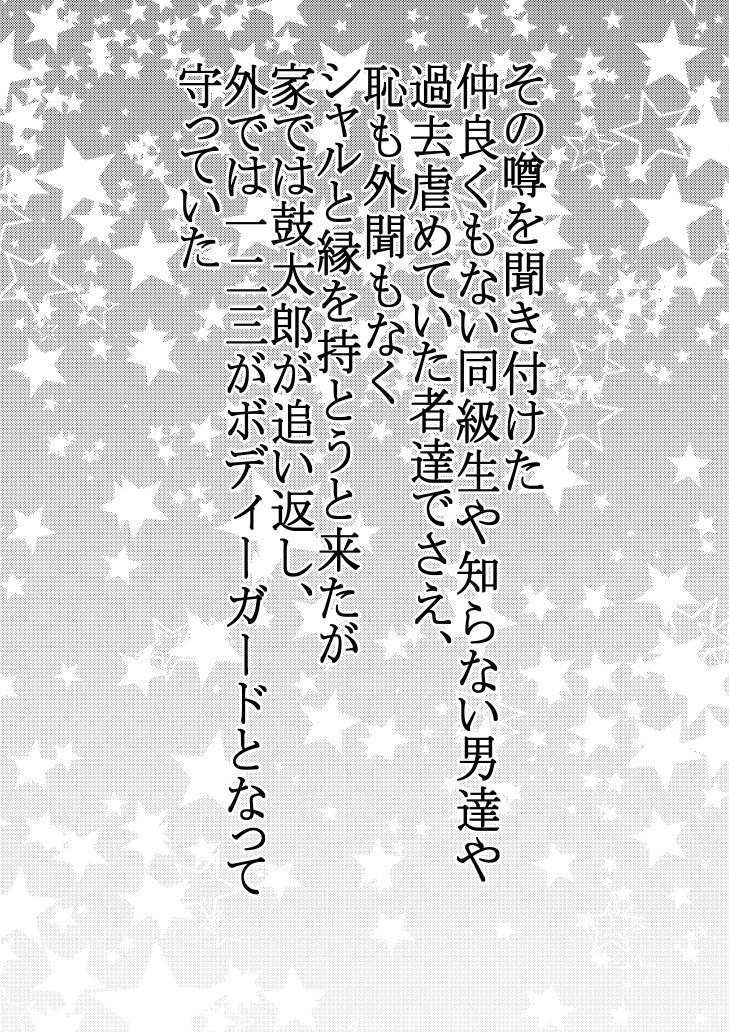 その噂を聞き付けた
仲良くもない同級生や知らない男達や
過去虐めていた者達でさえ、
恥も外聞もなく
シャルと縁を持とうと来たが
家では鼓太郎が追い返し、
外では一二三がボディーガードとなって
守っていた